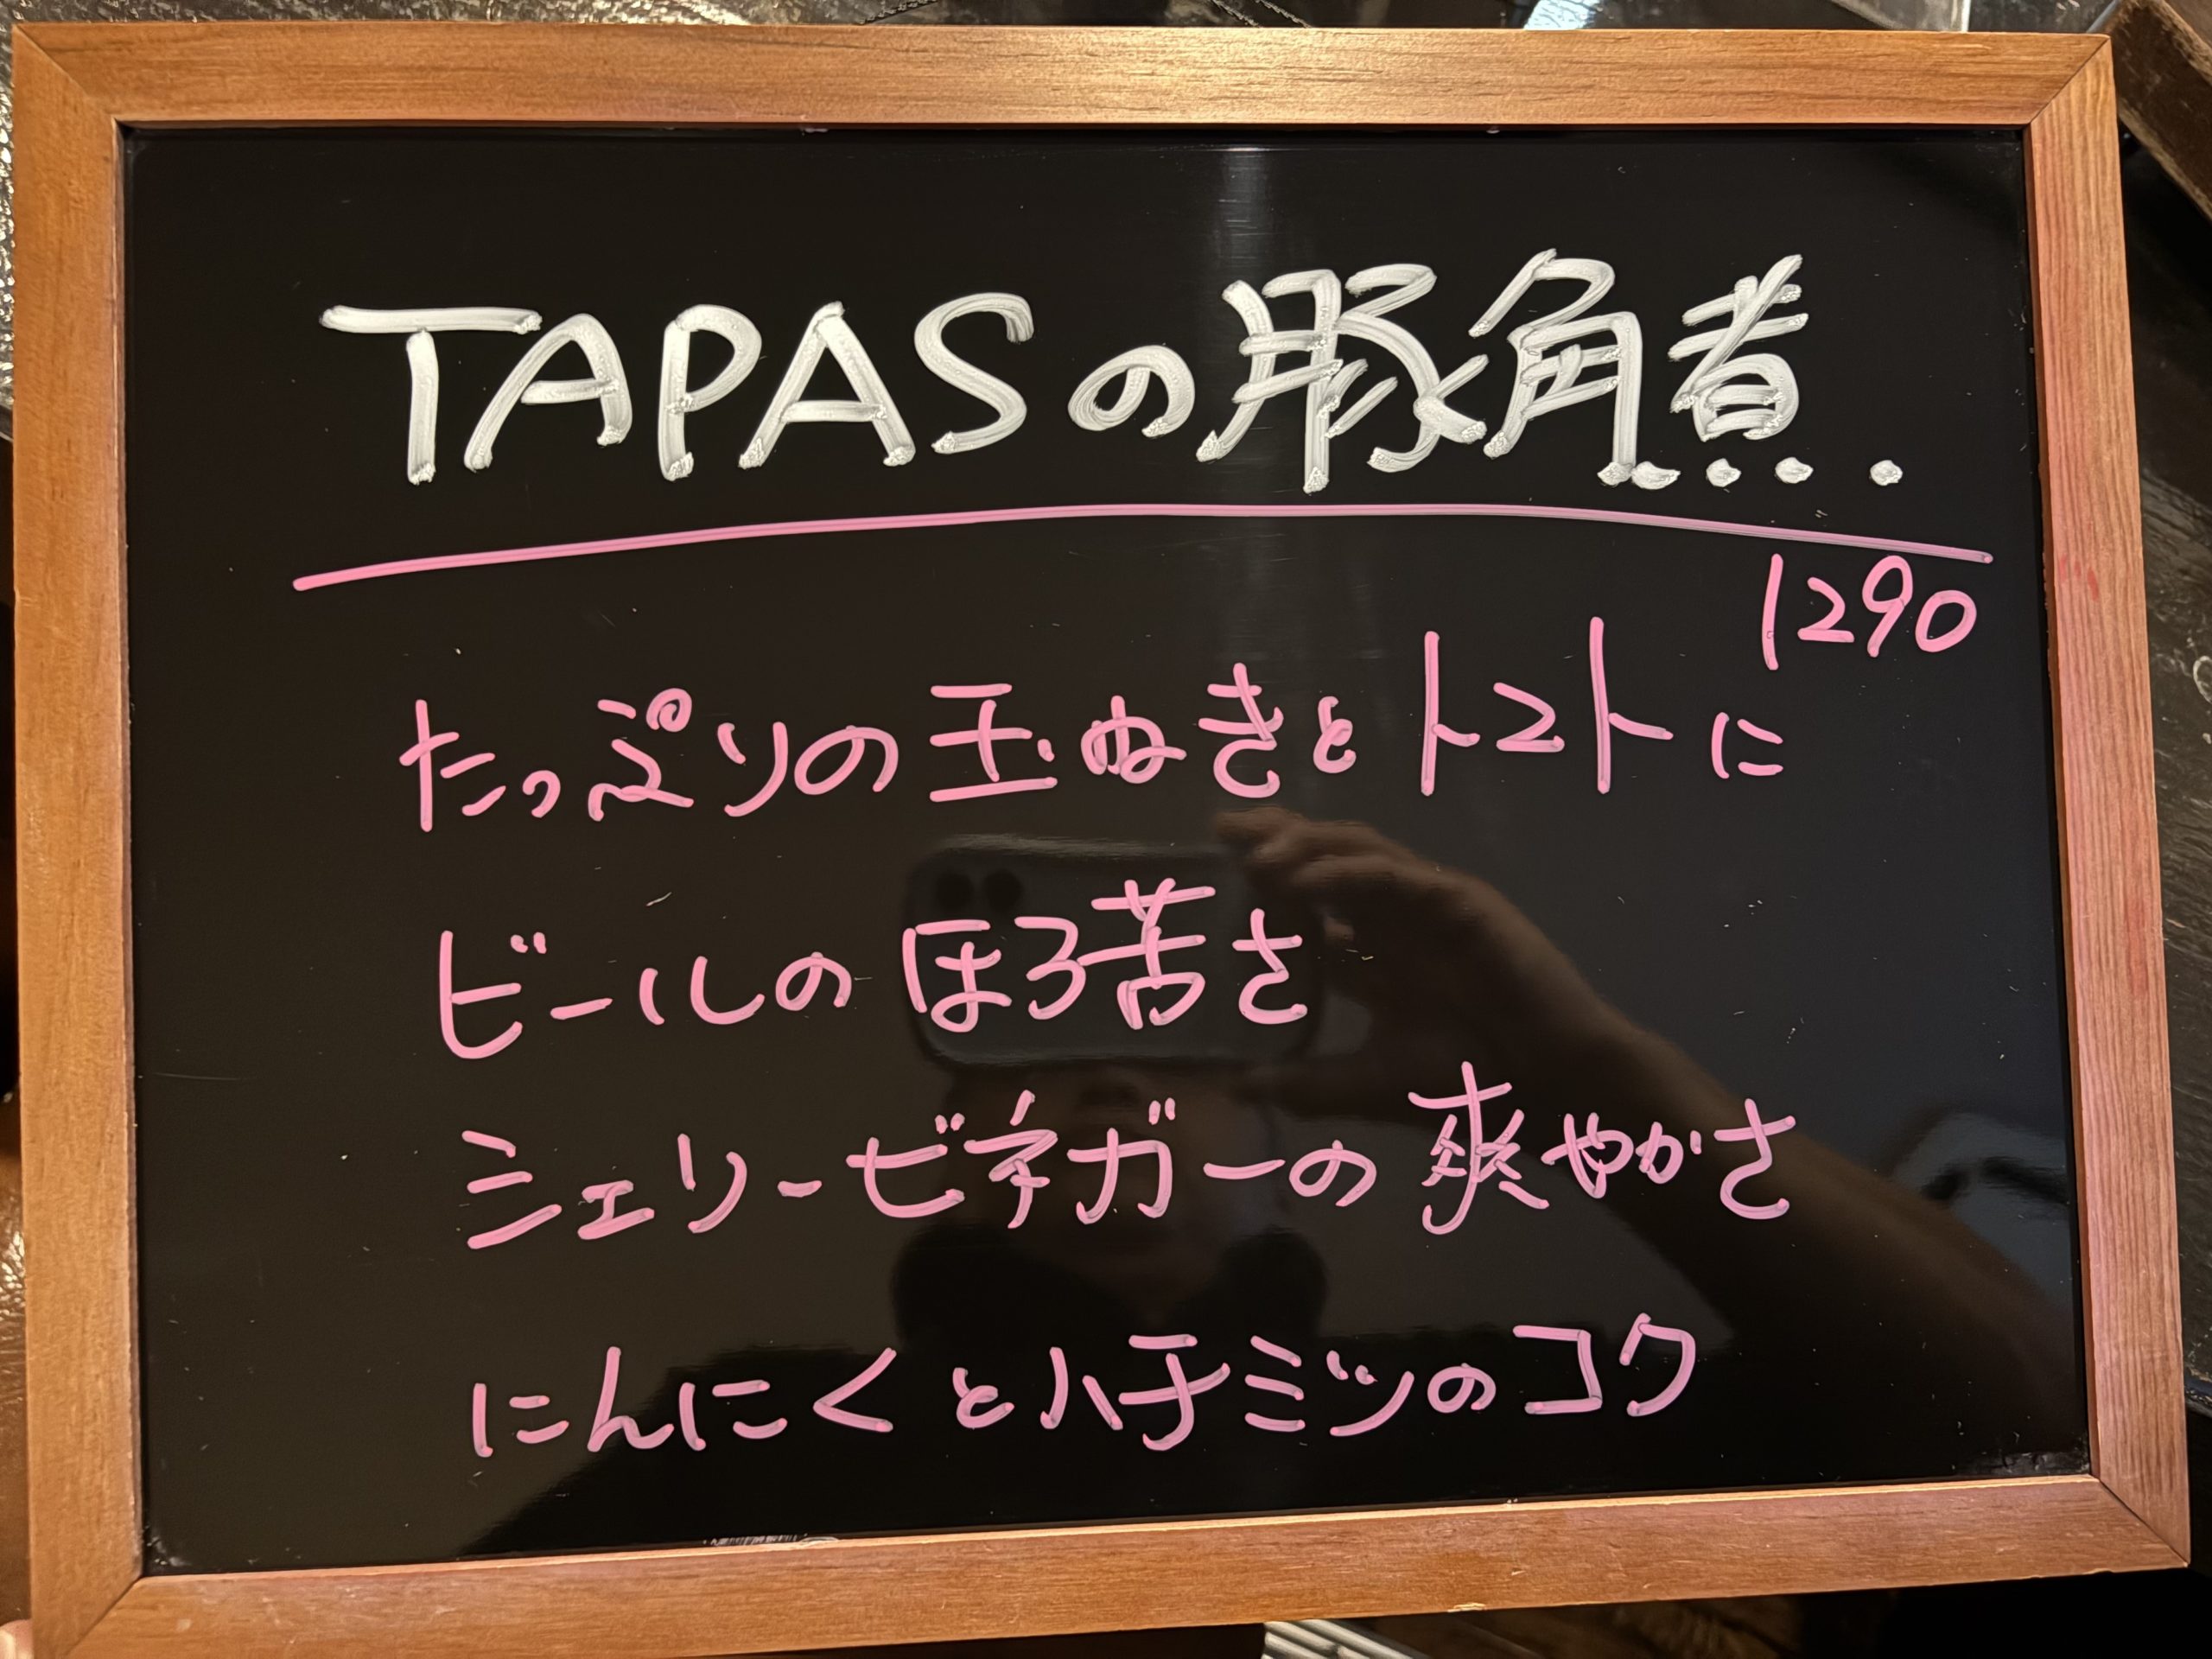 TAPASの豚角煮
1290
たっぷりの玉ねぎとトマトに
ビールのほろ苦さ
シェリービネガーの爽やかさ
にんにくとハチミツのコク